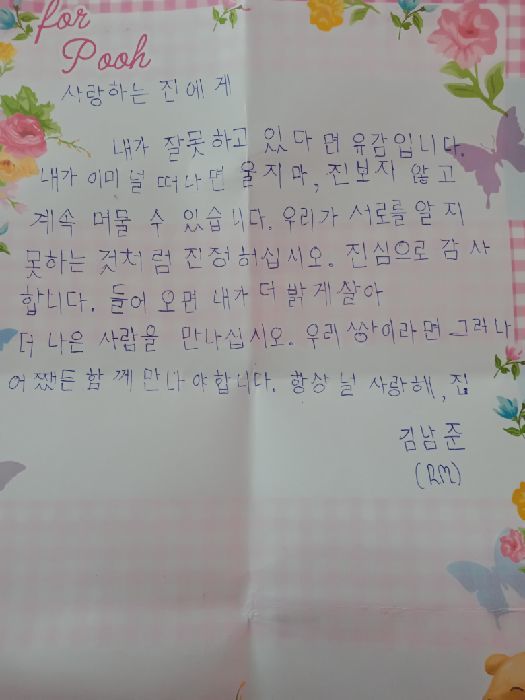 for
Pooh
사랑하는 진에게
내가 잘못하고 있다면 유감입니다.
내가 이미 널 떠나면 울지마, 진보지 않고
계속 머물 수 있습니다. 우리가 서로를 알지
못하는 것처럼 진정하십시오. 진심으로 감사
합니다. 들어 오면 내가 더 밝게살아
더 나은 사람을 만나십시오. 우리 쌍이라면 그러나
어쨌든 함께 만나야합니다. 항상 널 사랑해,
김남준
(RM)